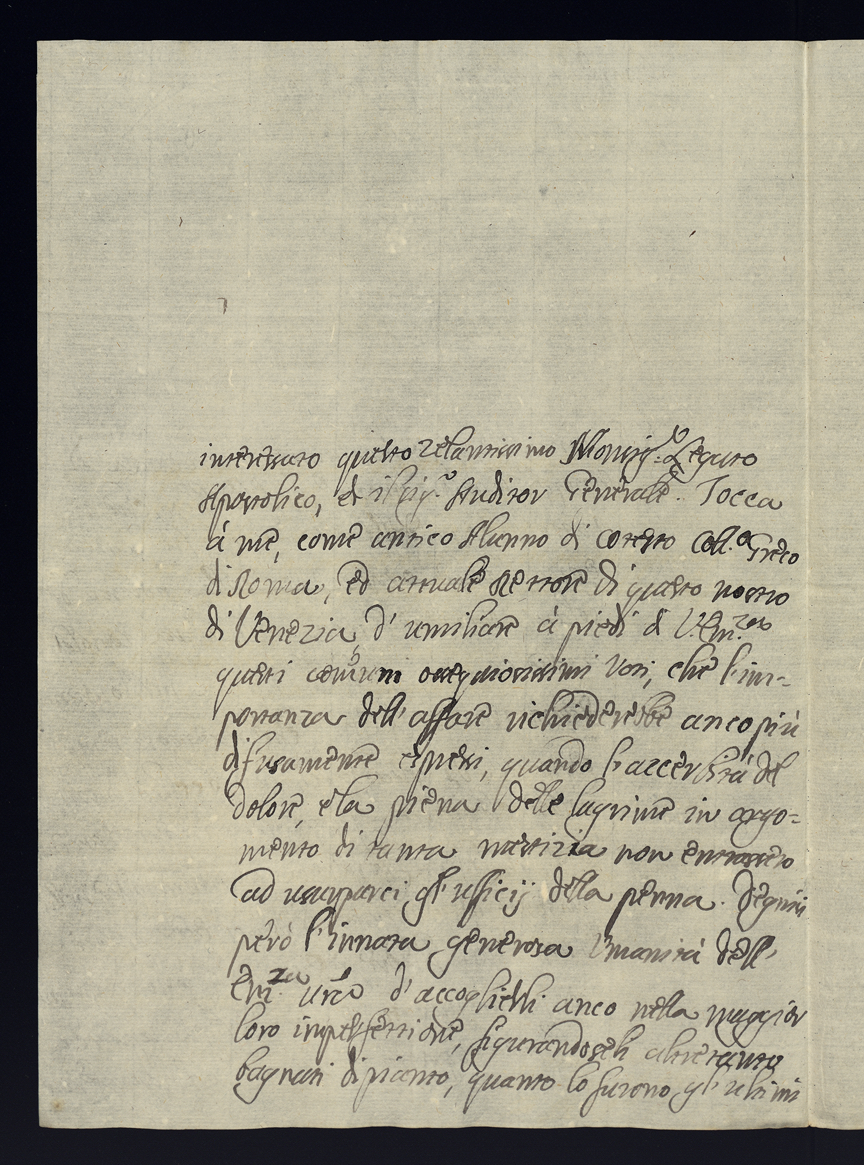 interessato questo zelantissimo Monsig.r Legato
Apostolico, et il Sig.r Auditor Generale. Tocca
à me, come antico Alunno di cotesto Coll.o Greco
di Roma, ed attuale Rettore di questo nostro
di Venezia, d'umiliare à piedi di V. Em.za
questi comuni ossequiosissimi Voti, che l'im-
portanza dell'affare richiederebbe anco più
difusamente espressi, quando l'accerbità del
dolore, e la piena delle lagrime in argo=
mento di tanta mestizia non entrassero
ad usurparci gl'ufficij della penna. Degnisi
però l'innata generosa Umanità dell'
Em.za vra d'accoglierli anco nella maggior
loro imperfettione, figurandoseli altretanto
bagnati di pianto, quanto lo furono gl'ultimi